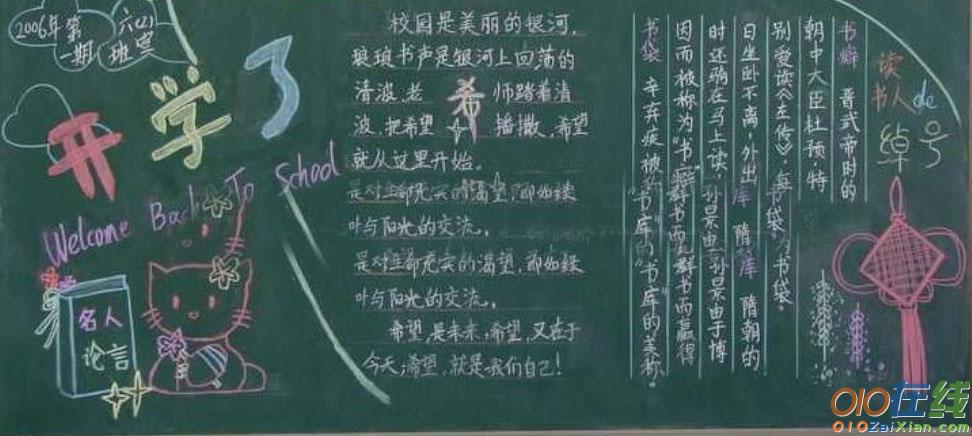 2006年第
一期
六(2)
班宣
开学了
Welcome Back To School
名人
论言
校园是美丽的银河,
琅琅书声是银河上回荡的
清波,老 师踏着清
波,把希望 播撒,希望
就从这里开始。
希
是对生命充实的渴望,即如绿
叶与阳光的交流。
是对生命充实的渴望,即如绿
叶与阳光的交流。
希望,是未来,希望,又在于
今天,希望,就是我们自己!
读
书人de
绰号
书癖 晋武帝时的
朝中大臣杜预,特
别爱读《左传》,每
日坐卧不离,外出
时还驮在马上读,
因而被称为“书
书袋
书袋
库 隋朝的
孙景由于博
群书而赢得
“书库”的美称。
010在线
010ZaiXian.com